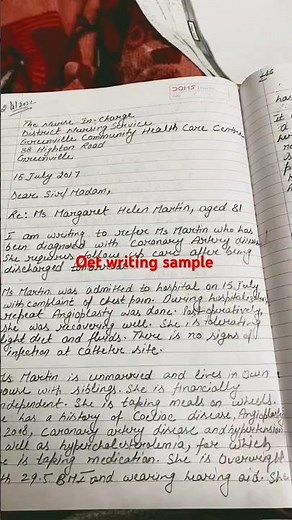 DOMS
The Nurse In-Charge
District Nursing Service
Greenville Community Health Care Centre
88 Highton Road
Greenville
15 July 2017
Dear Sir/Madam,
Re: Ms Margaret Helen Martin, aged 81
I am writing to refer Ms Martin who has
been diagnosed with coronary Artery disease
She requires follow up care after being
discharged
Oet writing sample
Ms Martin was admitted to hospital on 15 July
with complaint of chest pain. During hospitalisation
repeat Angioplasty was done. Post-operatively,
she was recovering well. She is tolerating
light diet and fluids. There is no signs of
infection at catheter site.
Ms Martin is unmarried and lives in own
house with siblings. She is financially
independent. She is taking meals on wheels.
has a history of Coeliac disease, Angioplasty
2008, coronary artery disease and hypertension
well as hypercholesterolemia, for which
is taking medication. She is Overweight
29.5 BMI and wearing hearing aid. She